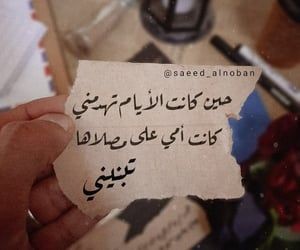 @saeed_alnoban
حين كانت الأيام تهدمني
كانت أمي على مصلاها
تبنيني